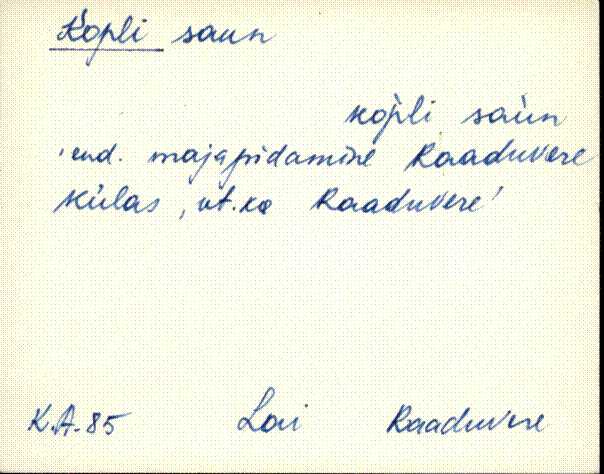 Kopli saun
kop̀li saùn
'end. majapidamine Raaduvere
külas, vt. ka Raaduvere'
K.A.-85 Lai Raaduvere